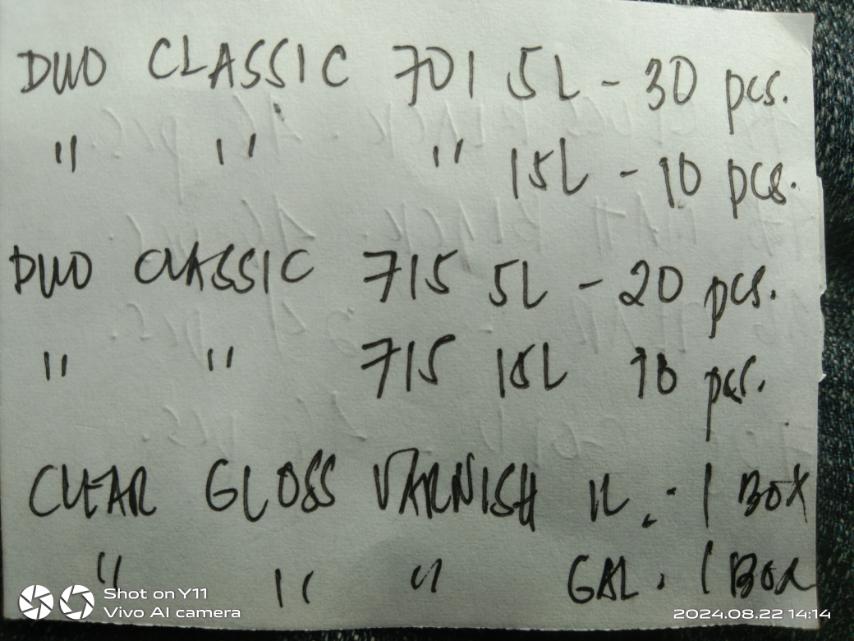 DUO CLASSIC 701 5L - 30 pcs.
" " " 15L - 10 pcs.
DUO CLASSIC 715 5L - 20 pcs.
" " 715 15L 10 pcs.
CLEAR GLOSS VARNISH 1L. - 1 BOX
" " " GAL. 1 BOX
Shot on Y11
Vivo AI camera
2024.08.22 14:14